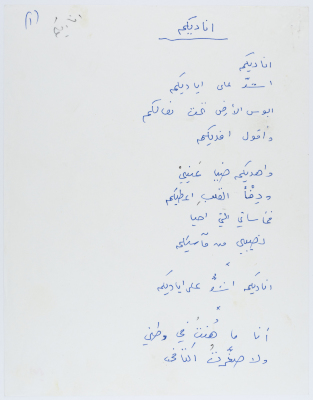 (١)
أناديكم
اناديكم
اناديكم
اشدّ على اياديكم
ابوس الأرض تحت نعالكم
وأقول افديكم
واهديكم ضيا عينيْ
ودِفْأَ القلبِ اعطيكم
فمأساتي التي احيا
نصيبي من مآسيكم
اناديكم اشدُّ على اياديكم
أنا ما هُنْتُ في وطني
ولا صغَّرتُ أكتافي